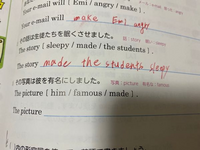 Your e-mail will [ Emi / angry / make ].
Your e-mail will make Emi angry
その話は生徒たちを眠くさせました。
The story [ sleepy / made / the students ].
The story made the students sleepy
その写真は彼を有名にしました。 写真：picture 有名な：famous
The picture [ him / famous / made ].
The picture